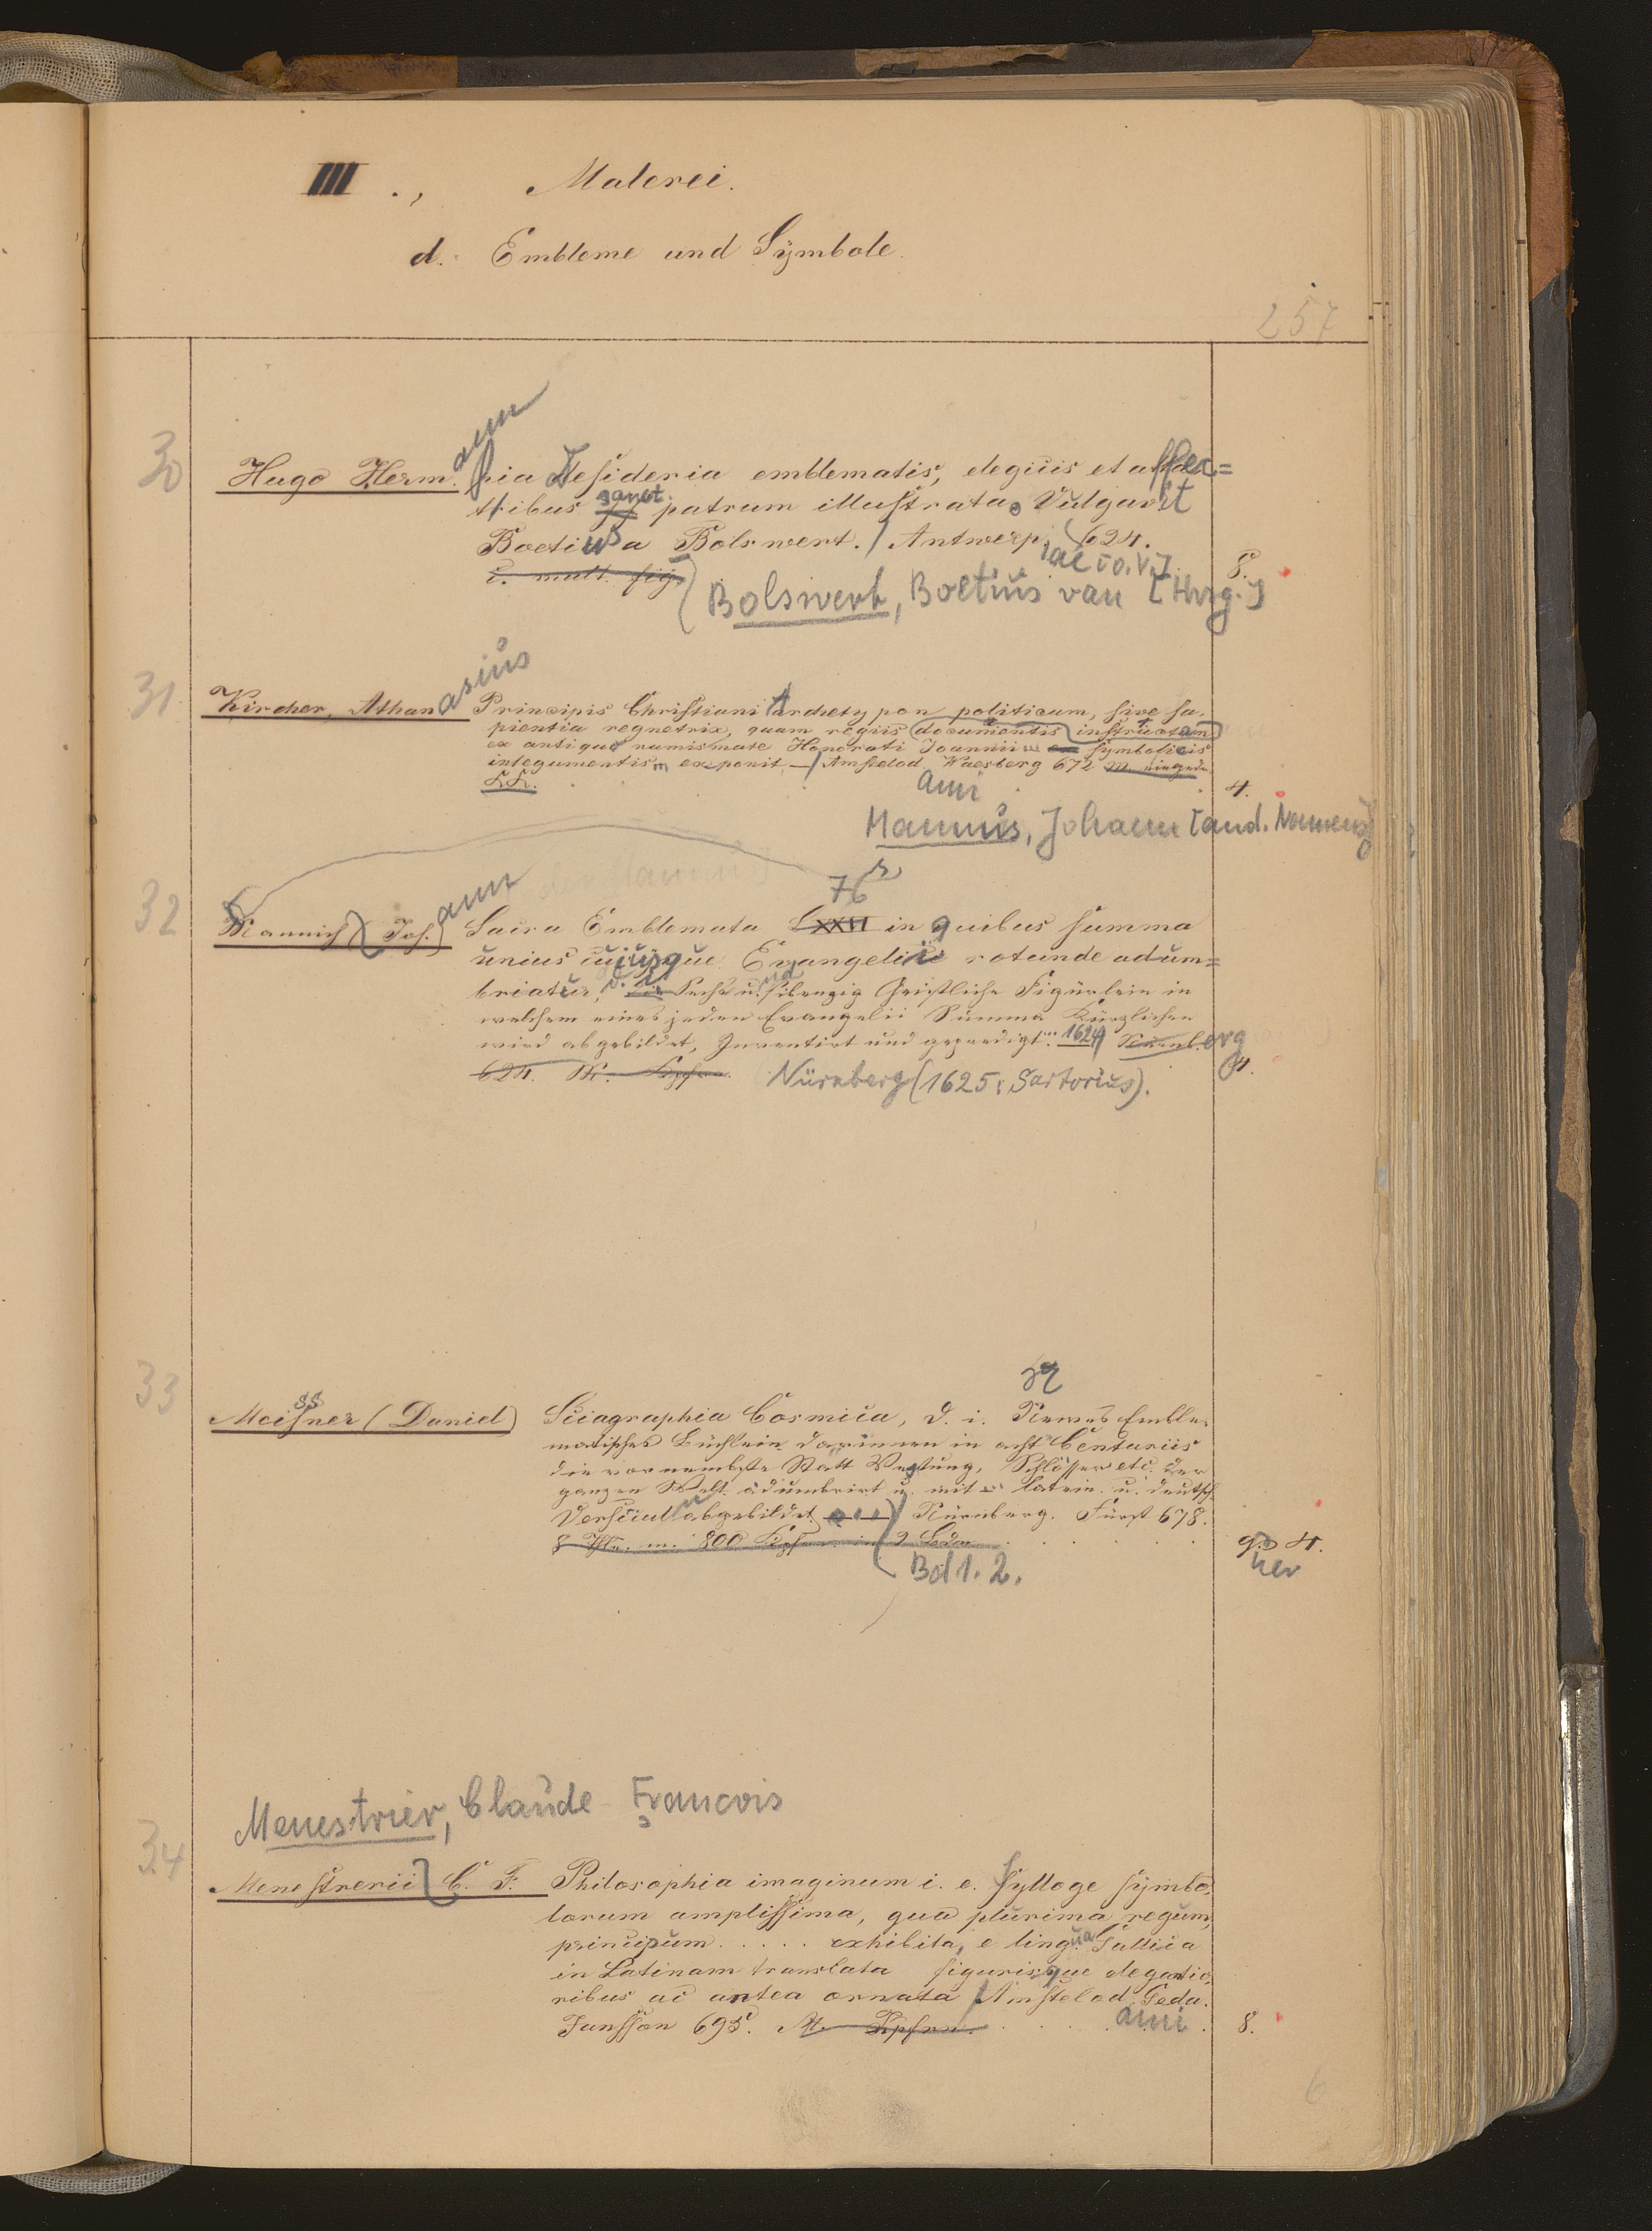 III., Malerei.
d. Embleme und Symbole.
257
30
Hugo Hermann Pia Desideria emblematis, elegiis et affec=
tibus sanct. patrum illustrata. Vulgavit
Boetius a Bolswert. / Antwerp 624.
c. mult. fig. 8.
Bolswert, Boetius van [Hrsg.]
31
Kircher, Athanasius Principis Christiani Archetypon politicum, sive sa-
pientia regnatrix, quam regiis documentis instructam
ex antiquo numismate Honorati Joannii symbolicis
integumentis exponit — / Amstelod Waesberg 672
4.
Mannus, Johann [and. Namens
32
Mannich Johann Sacra Emblemata LXXVI 76 in quibus summa
unius cujusque Evangelii rotunde adum=
bratur, d. i. Sechs und sibenzig Geistliche Figürlein in
welchem eines jeden Evangelii Summa Kürzlichen
wird abgebildet, Inventirt und gepredigt ... 1624 Nürnberg
624. M. Kpfrn. Nürnberg (1625: Sartorius). 4.
33
Meissner (Daniel) Sciagraphia Cosmica, d. i. Newes Emble-
matisches Büchlein darinnen in acht Centuriis
die vornembste Statt Vestung, Schlösser etc. der
ganzen Welt adumbrirt u. mit latein. u. deutsch
Versiculn abgebildet Nürnberg. Fürst 678.
8 Thle. m. 800 Kpfrn in 2 Bdn
q. 4.
Bd 1. 2.
Menestrier, Claude Francois
34
Menestrerii C. F. Philosophia imaginum i. e. Sylloge symbo-
lorum amplissima, qua plurima regum,
principum ..... exhibita, e lingua Gallica
in Latinam translata figurisque elegantio-
ribus ac antea ornata / Amstelod. Geda.
Jansson 695. M. Kpfrn. 8.
6